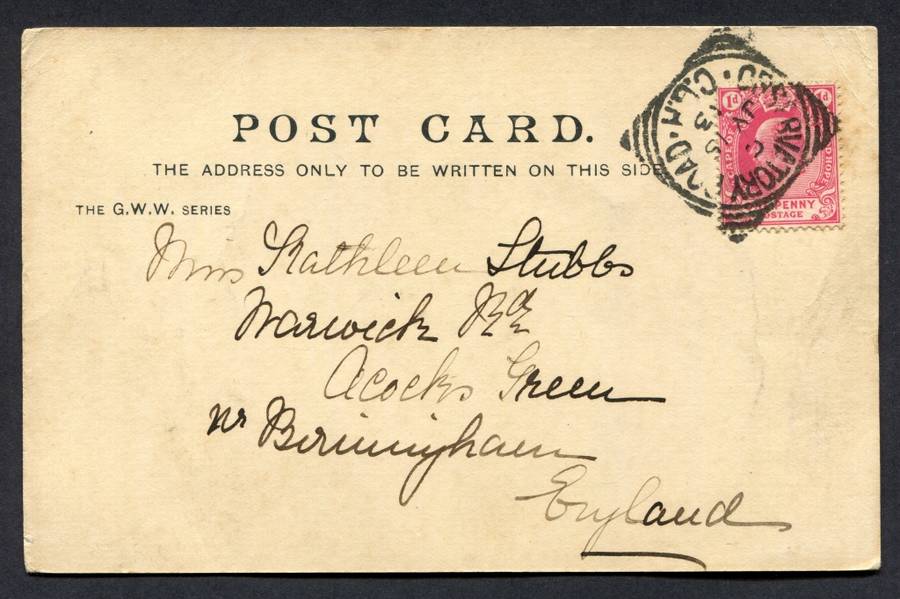 POST CARD.
THE ADDRESS ONLY TO BE WRITTEN ON THIS SIDE
THE G.W.W. SERIES
1d 1d
CAPE OF HOPE
PENNY
POSTAGE
OBSERVATORY ROAD. C.G.H.
JY
Miss Kathleen Stubbs
Warwick Rd
Acocks Green
nr Birmingham
England